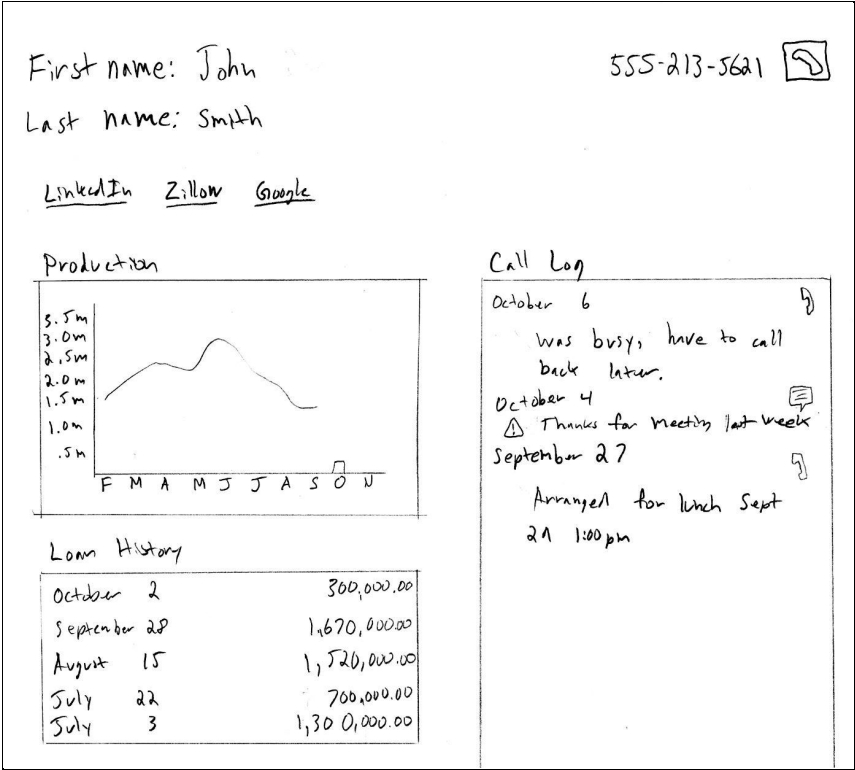 First name: John
555-213-5621
Last name: Smith
LinkedIn Zillow Google
Production
3.5m
3.0m
2.5m
2.0m
1.5m
1.0m
.5m
F M A M J J A S O N
Loan History
October 2 300,000.00
September 28 1,670,000.00
August 15 1,520,000.00
July 22 700,000.00
July 3 1,300,000.00
Call Log
October 6
Was busy, have to call
back later.
October 4
Thanks for meeting last week
September 27
Arranged for lunch Sept
1:00pm